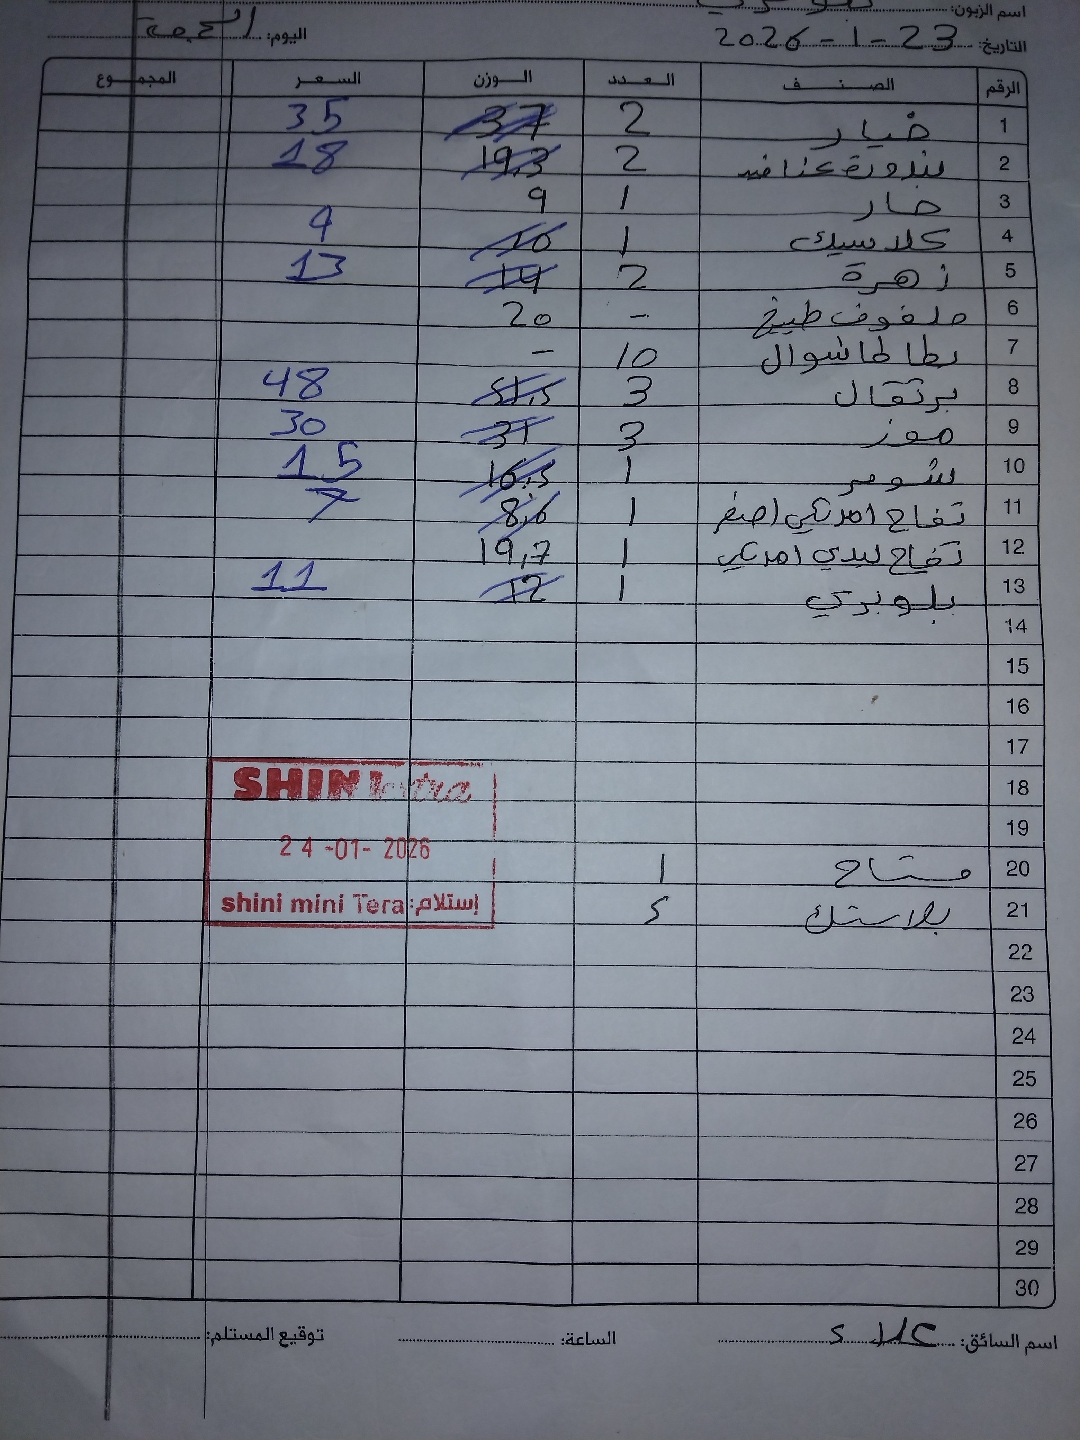 اسم الزبون:
التاريخ: 23-1-2026 اليوم: الجمعة
الرقم الصنف العدد الوزن السعر المجموع
1 خيار 2 37 35
2 بندورة عناقيد 2 19,3 18
3 حار 1 9
4 كلاسيك 1 10 9
5 زهرة 2 14 13
6 ملفوف طبيخ - 20
7 بطاطا شوال 10 -
8 برتقال 3 51,5 48
9 موز 3 31 30
10 شومر 1 16,5 15
11 تفاح امريكي اصفر 1 8,6 7
12 تفاح ليدي امريكي 1 19,7
13 بلوبري 1 12 11
14
15
16
17
18
19
SHINI extra
24-01-2026
shini mini Tera إستلام:
20 مشتاح 1
21 بلاستك 5
22
23
24
25
26
27
28
29
30
اسم السائق: علاء الساعة: توقيع المستلم: